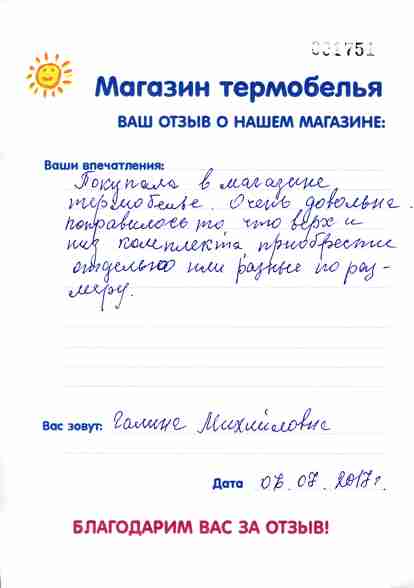 031751
Магазин термобелья
ВАШ ОТЗЫВ О НАШЕМ МАГАЗИНЕ:
Ваши впечатления:
Покупала в магазине
термобелье. Очень довольна.
понравилось то, что верх и
низ комплекта, приобрести
отдельно или разные по раз-
меру.
Вас зовут: Галина Михайловна
Дата 07.07.2017г.
БЛАГОДАРИМ ВАС ЗА ОТЗЫВ!